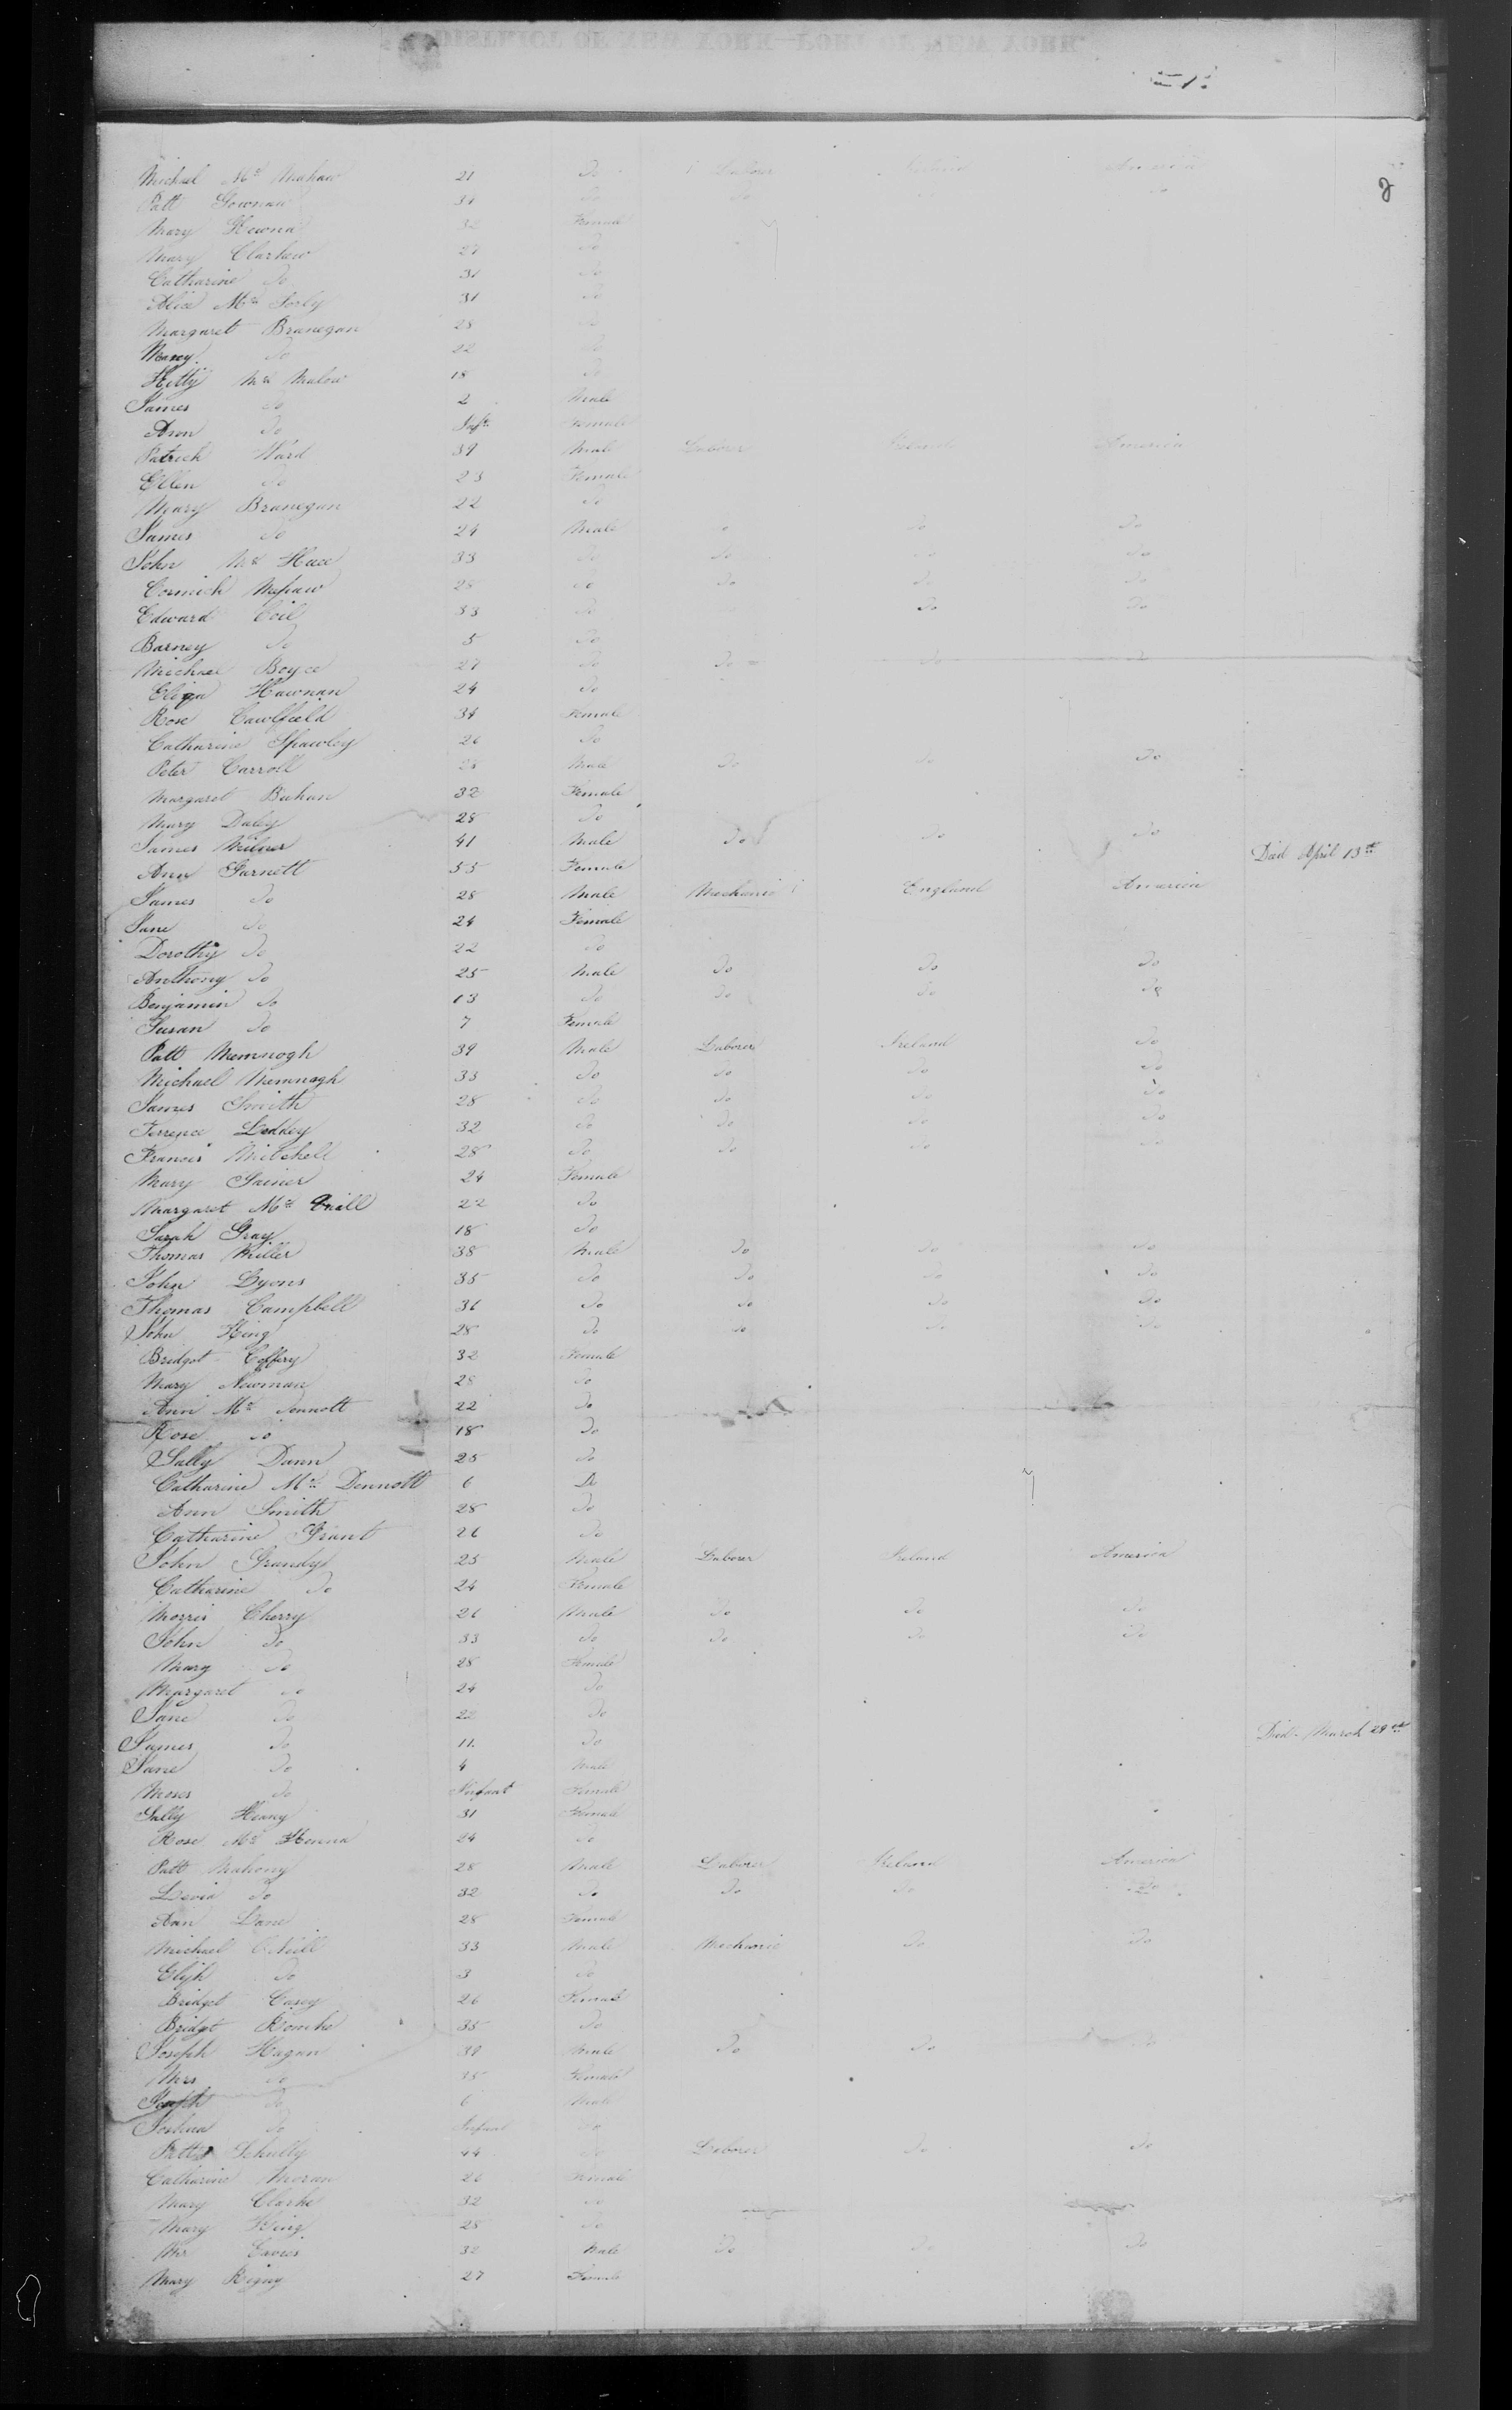 2
Michael Mc Mahaw 21 Do Laborer Ireland America
Patt Gownan 34 Do Do Do
Mary Kewna 32 Female
Mary Clarkew 27 Do
Catharine Do 31 Do
Alice Mc Sorly 31 Do
Margaret Branegan 28 Do
Mary Do 22 Do
Kitty Mc Malow 18 Do
James Do 2 Male
Ann Do Inft Female
Patrick Ward 39 Male Laborer Ireland America
Ellen Do 23 Female
Mary Branegan 22 Do
James Do 24 Male Do Do Do
John Mc Hace 33 Do Do Do Do
Cormick 28 Do Do Do Do
Edward Coil 33 Do Do Do
Barney Do 5 Do
Michael Boyce 27 Do Do Do Do
Eliza Hawnan 24 Do
Rose Cawlfield 34 Female
Catharine Spawley 26 Do
Peter Carroll 28 Male Do Do Do
Margaret Buhan 32 Female
Mary Daley 28 Do
James Milner 41 Male Do Do Do
Ann Garnett 55 Female Died April 13th
James Do 28 Male Mechanic England America
Jane Do 24 Female
Dorothy Do 22 Do
Anthony Do 25 Male Do Do Do
Benjamin Do 13 Do Do Do Do
Susan Do 7 Female
Patt Memnogh 39 Male Laborer Ireland Do
Michael Memnagh 33 Do Do Do Do
James Smith 28 Do Do Do Do
Terrence Leddey 32 Do Do Do Do
Francis Mitchell 28 Do Do Do Do
Mary Gainer 24 Female
Margaret Mc Neill 22 Do
Sarah Gray 18 Do
Thomas Miller 38 Male Do Do Do
John Lyons 35 Do Do Do Do
Thomas Campbell 36 Do Do Do Do
John King 28 Do Do Do Do
Bridget Coffery 32 Female
Mary Newman 28 Do
Ann Mc Dennott 22 Do
Rose Do 18 Do
Sally Dunn 25 Do
Catharine Mc Dennott 6 Do
Ann Smith 28 Do
Catharine Grant 26 Do
John Grandy 25 Male Laborer Ireland America
Catharine Do 24 Female
Morris Cherry 26 Male Do Do Do
John Do 33 Do Do Do Do
Mary Do 28 Female
Margaret Do 24 Do
Jane Do 22 Do
James Do 11 Do Died March 29th
Jane Do 4 Male
Moses Do Infant Female
Sally Heany 31 Female
Rose Mc Kenna 24 Do
Patt Mahony 28 Male Laborer Ireland America
David Do 32 Do Do Do Do
Ann Lane 28 Female
Michael O'Neill 33 Male Mechanic Do Do
Elijh Do 3 Do
Bridget Casey 26 Female
Bridget 35 Do
Joseph Hagan 39 Male Do Do Do
Mrs Do 35 Female
Joseph Do 6 Male
Joshua Do Infant Do
Patt Schully 44 Do Laborer Do Do
Catharine Moran 26 Female
Mary Clarke 32 Do
Mary King 28 Do
Mr 32 Male Do Do Do
Mary Rigny 27 Female